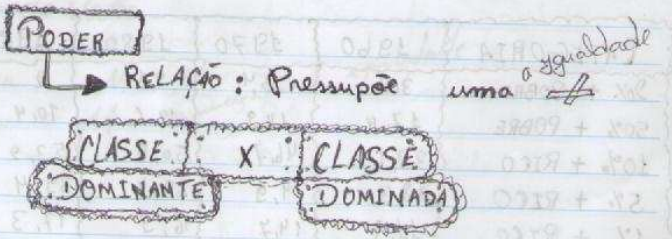 PODER
RELAÇÃO: Pressupõe uma
CLASSE X CLASSE
DOMINANTE DOMINADA